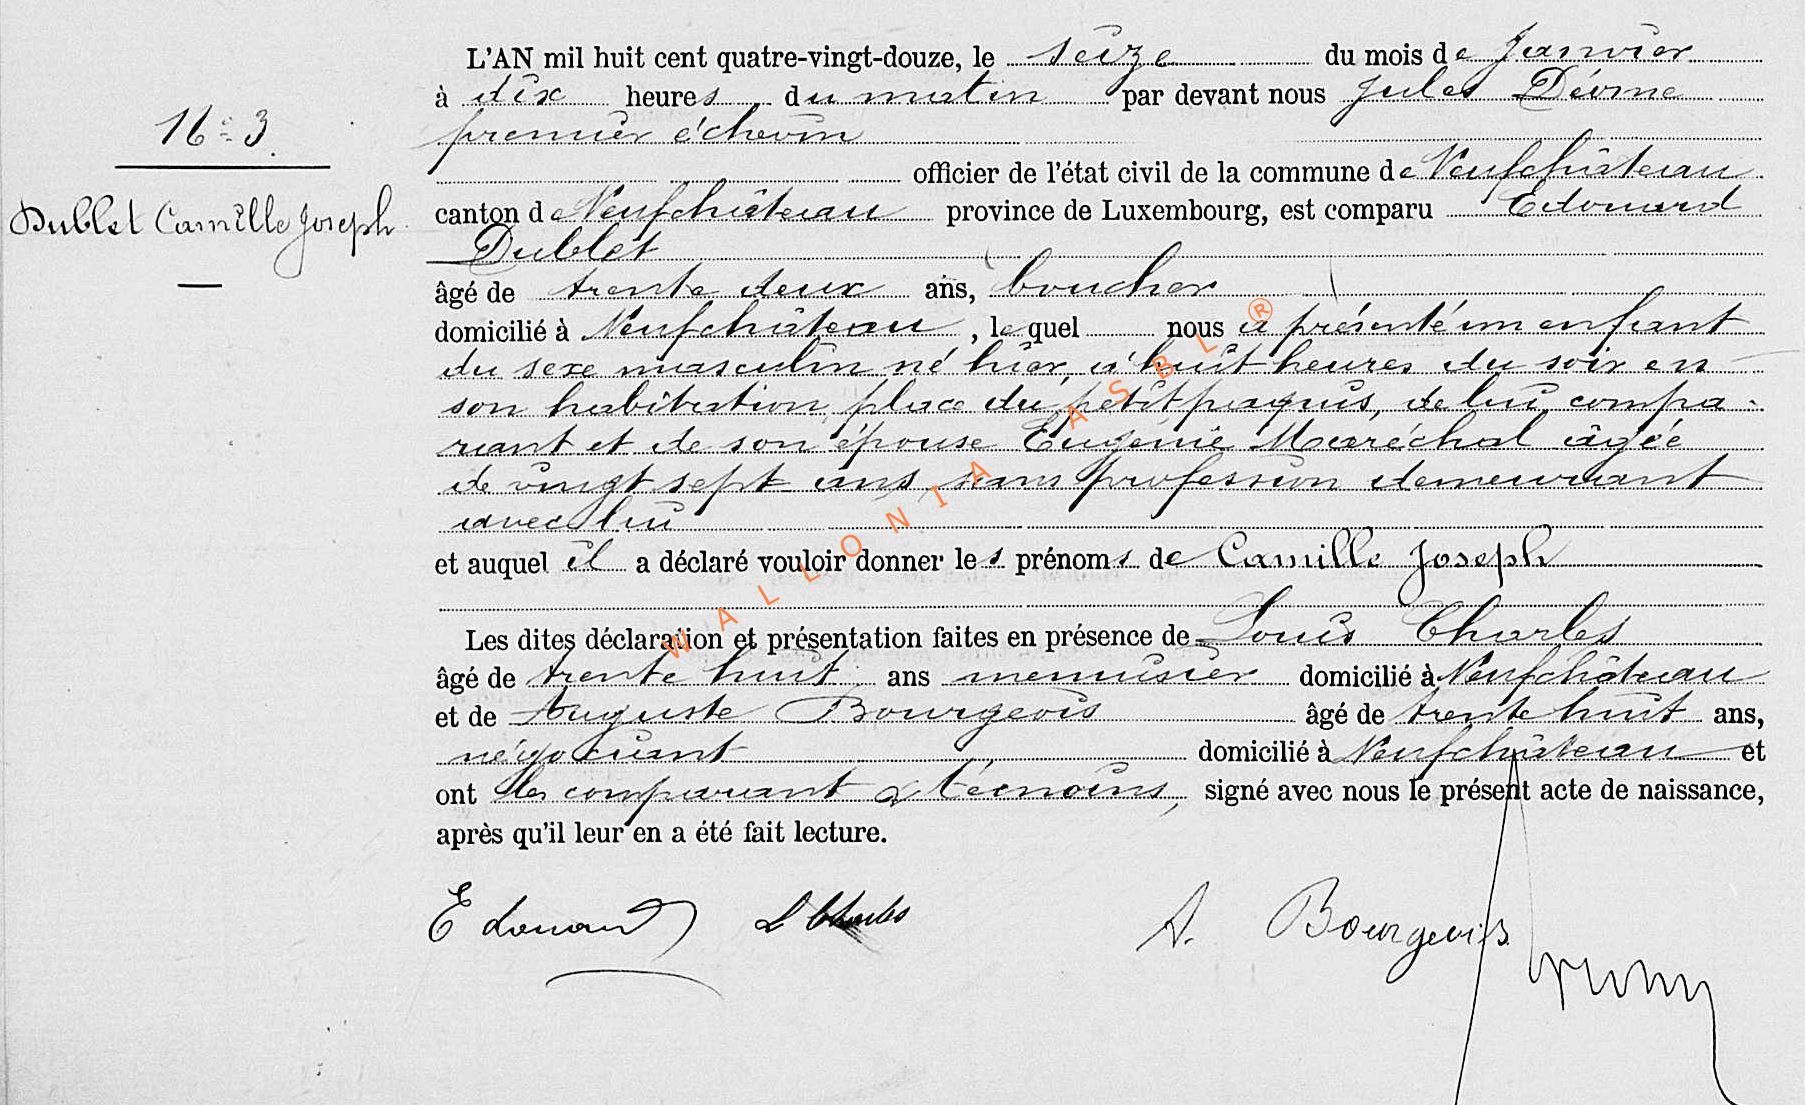 N° 3
Dublet Camille Joseph
L'AN mil huit cent quatre-vingt-douze, le seize du mois de Janvier
à dix heures du matin par devant nous Jules
premier échevin
officier de l'état civil de la commune de Neufchâteau
canton de Neufchâteau province de Luxembourg, est comparu Edouard
Dublet
âgé de trente deux ans, boucher
domicilié à Neufchâteau, lequel nous a présenté un enfant
du sexe masculin né hier, à huit heures du soir en
son habitation, place du petit paquis, de lui compa-
rant et de son épouse Eugénie Maréchal âgée
de vingt sept ans, sans profession demeurant
avec lui
et auquel il a déclaré vouloir donner les prénoms de Camille Joseph
Les dites déclaration et présentation faites en présence de Louis Charles
âgé de trente huit ans menuisier domicilié à Neufchâteau
et de Auguste Bourgeois âgé de trente huit ans,
négociant domicilié à Neufchâteau et
ont les comparant & témoins, signé avec nous le présent acte de naissance,
après qu'il leur en a été fait lecture.
Edouard L Charles A. Bourgeois
WALLONIA ASBL ®